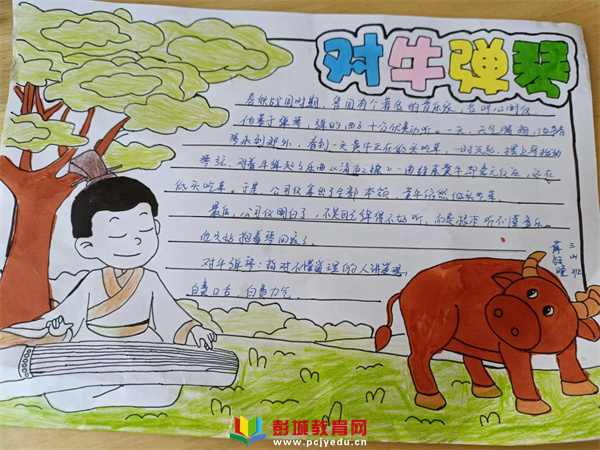 对牛弹琴
春秋战国时期，鲁国有个著名的音乐家，名叫公明仪。
他善于弹琴，弹的曲子十分优美动听。一天，天气晴朗，他带着
琴来到郊外，看到一头黄牛正在低头吃草。一时兴起，摆上琴拨动
琴弦，对着牛弹起了乐曲《清角之操》一曲结束黄牛毫无反应，还在
低头吃草。于是，公明仪拿出了全部本领，黄牛依然低头吃草。
最后，公明仪明白了，不是自己弹得不好听，而是牛听不懂音乐。
他只好抱着琴回家了。
对牛弹琴：指对不懂道理的人讲道理，
白费口舌，白费力气。
三山班
彭城教育网
www.pcjyedu.cn